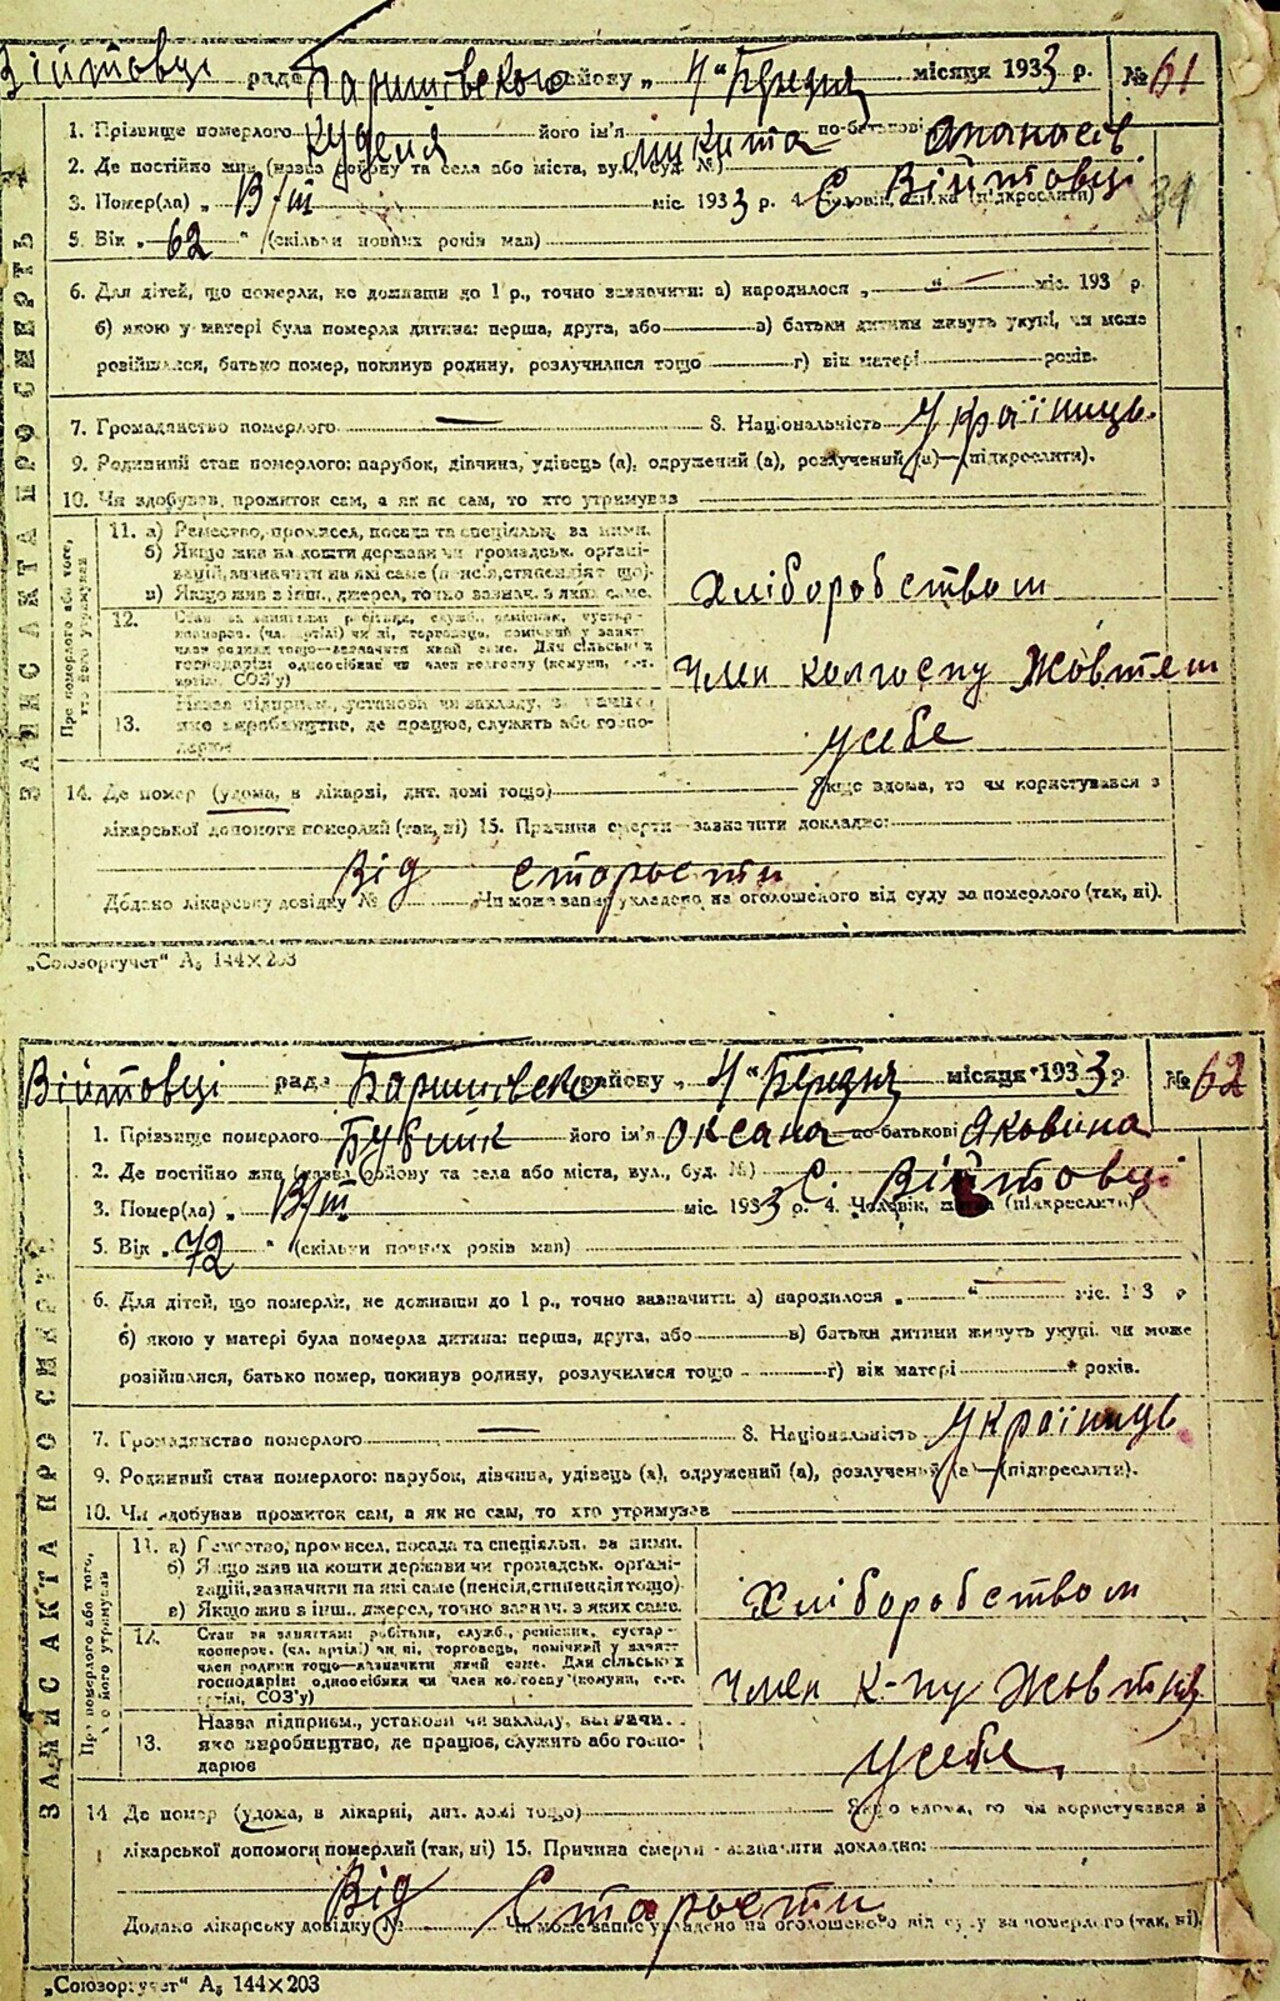 Війтовці рада Баришівського району „ 4 " Березня місяця 1933 р. № 61
ЗАПИС АКТА ПРО СМЕРТЬ
1. Прізвище померлого його ім'я Микита по-батькові Опанасів
2. Де постійно жив (назва району та села або міста, вул., буд. №) С. Війтовці
3. Помер(ла) „ 3/III міс. 1933 р. 4. Чоловік, жінка (підкреслити) 34
5. Вік „ 62 " (скільки повних років мав)
6. Для дітей, що померли, не доживши до 1 р., точно зазначити: а) народилося „ — " міс. 193 р.
б) якою у матері була померла дитина: перша, друга, або в) батьки дитини живуть укупі, чи може
розійшлися, батько помер, покинув родину, розлучилися тощо г) вік матері років.
7. Громадянство померлого — 8. Національність Українець.
9. Родинний стан померлого: парубок, дівчина, удівець (а), одружений (а), розлучений (а)—(підкреслити).
10. Чи здобував прожиток сам, а як не сам, то хто утримував
Про померлого або того, хто його утримував
11. а) Ремество, промисел, посада та спеціяльн. за ними.
б) Якщо жив на кошти держави чи громадськ. органі-
зацій, зазначити на які саме (пенсія, стипендія тощо).
в) Якщо жив з інш. джерел, точно зазнач. з яких саме.
Хліборобством
12. Стан за заняттям: робітник, служб., ремісник, кустар-
кооперов. (чл. артілі) чи ні, торговець, помічний у занятт.
член родини тощо—зазначити який саме. Для сільських
господарів: одноосібник чи член колгоспу (комуни, с.-г.
артілі, СОЗ'у)
Член колгоспу Жовтень
13. Назва підприєм., установи чи закладу,
яке виробництво, де працює, служить або госпо-
дарює
у себе
14. Де помер (удома, в лікарні, дит. домі тощо) Якщо вдома, то чи користувався з
лікарської допомоги померлий (так, ні) 15. Причина смерти - зазначити докладно:
Від старости
Додано лікарську довідку № Чи може запис укладено на оголошеного від суду за померлого (так, ні).
„Союзоргучет" А₅ 144×203
Війтовці рада Баришівсько району „ 4 " Березня місяця 1933 р № 62
ЗАПИС АКТА ПРО СМЕРТЬ
1. Прізвище померлого його ім'я Оксана по-батькові Яковина
2. Де постійно жив (назва району та села або міста, вул., буд. №) С. Війтовці
3. Помер(ла) „ 3/III міс. 1933 р. 4. Чоловік, жінка (підкреслити)
5. Вік „ 72 " (скільки повних років мав)
6. Для дітей, що померли, не доживши до 1 р., точно зазначити: а) народилося „ — " міс. 193 р
б) якою у матері була померла дитина: перша, друга, або в) батьки дитини живуть укупі, чи може
розійшлися, батько помер, покинув родину, розлучилися тощо г) вік матері років.
7. Громадянство померлого — 8. Національність Українець
9. Родинний стан померлого: парубок, дівчина, удівець (а), одружений (а), розлучений (а)—(підкреслити).
10. Чи здобував прожиток сам, а як не сам, то хто утримував
Про померлого або того, хто його утримував
11. а) Ремество, промисел, посада та спеціяльн. за ними.
б) Якщо жив на кошти держави чи громадськ. органі-
зацій, зазначити на які саме (пенсія, стипендія тощо).
в) Якщо жив з інш. джерел, точно зазнач. з яких саме.
Хліборобством
12. Стан за заняттям: робітник, служб., ремісник, кустар-
кооперов. (чл. артілі) чи ні, торговець, помічний у занятт
член родини тощо—зазначити який саме. Для сільських
господарів: одноосібник чи член колгоспу (комуни, с.-г.
артілі, СОЗ'у)
Член к-пу
13. Назва підприєм., установи чи закладу,
яке виробництво, де працює, служить або госпо-
дарює
у себе.
14 Де помер (удома, в лікарні, дит. домі тощо) Якщо вдома, то чи користувався з
лікарської допомоги померлий (так, ні) 15. Причина смерти - зазначити докладно:
Від Старости
Додано лікарську довідку № Чи може запис укладено на оголошеного від суду за померлого (так, ні).
„Союзоргучет" А₅ 144×203